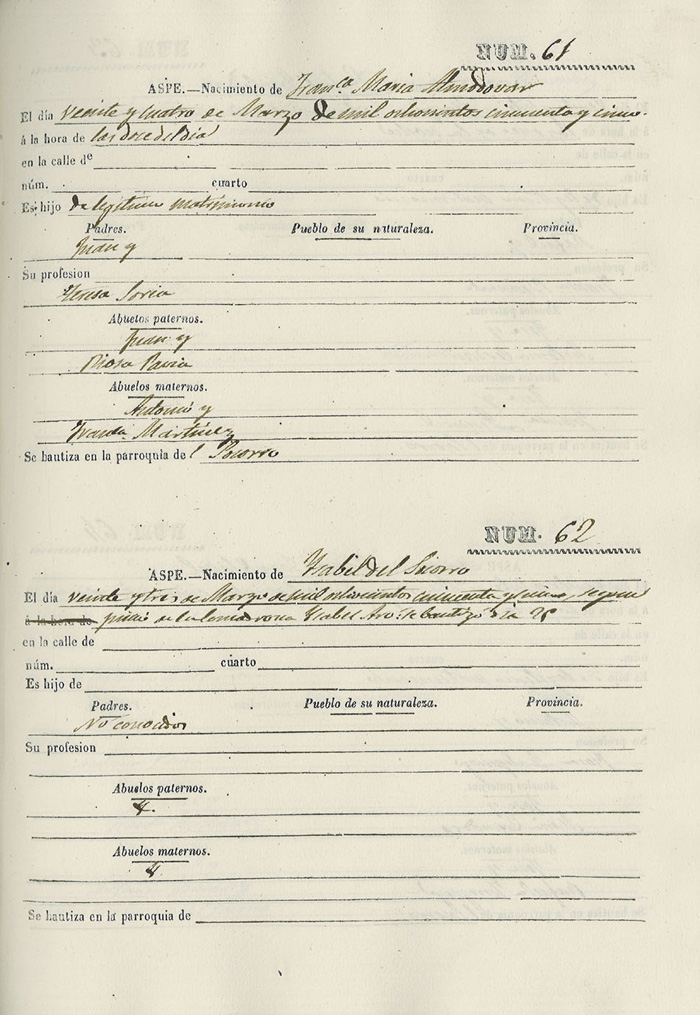 NUM. 61
ASPE.—Nacimiento de Fran.ca Maria Almodovar
El día veinte y cuatro de Marzo de mil ochocientos cincuenta y cinco
á la hora de las doce del dia
en la calle de
núm. cuarto
Es hijo de legitimo matrimonio
Padres. Pueblo de su naturaleza. Provincia.
Juan y
Su profesion
Teresa Soria
Abuelos paternos.
Juan y
Rosa Pavia
Abuelos maternos.
Antonio y
Martinez
Se bautiza en la parroquia del Socorro
NUM. 62
ASPE.—Nacimiento de Ysabel del Socorro
El día veinte y tres de Marzo de mil ochocientos cincuenta y cinco, segun
á la hora de juicio de la comadrona Ysabel se bautizó dia 25
en la calle de
núm. cuarto
Es hijo de
Padres. Pueblo de su naturaleza. Provincia.
No conocidos
Su profesion
Abuelos paternos.
Abuelos maternos.
Se bautiza en la parroquia de